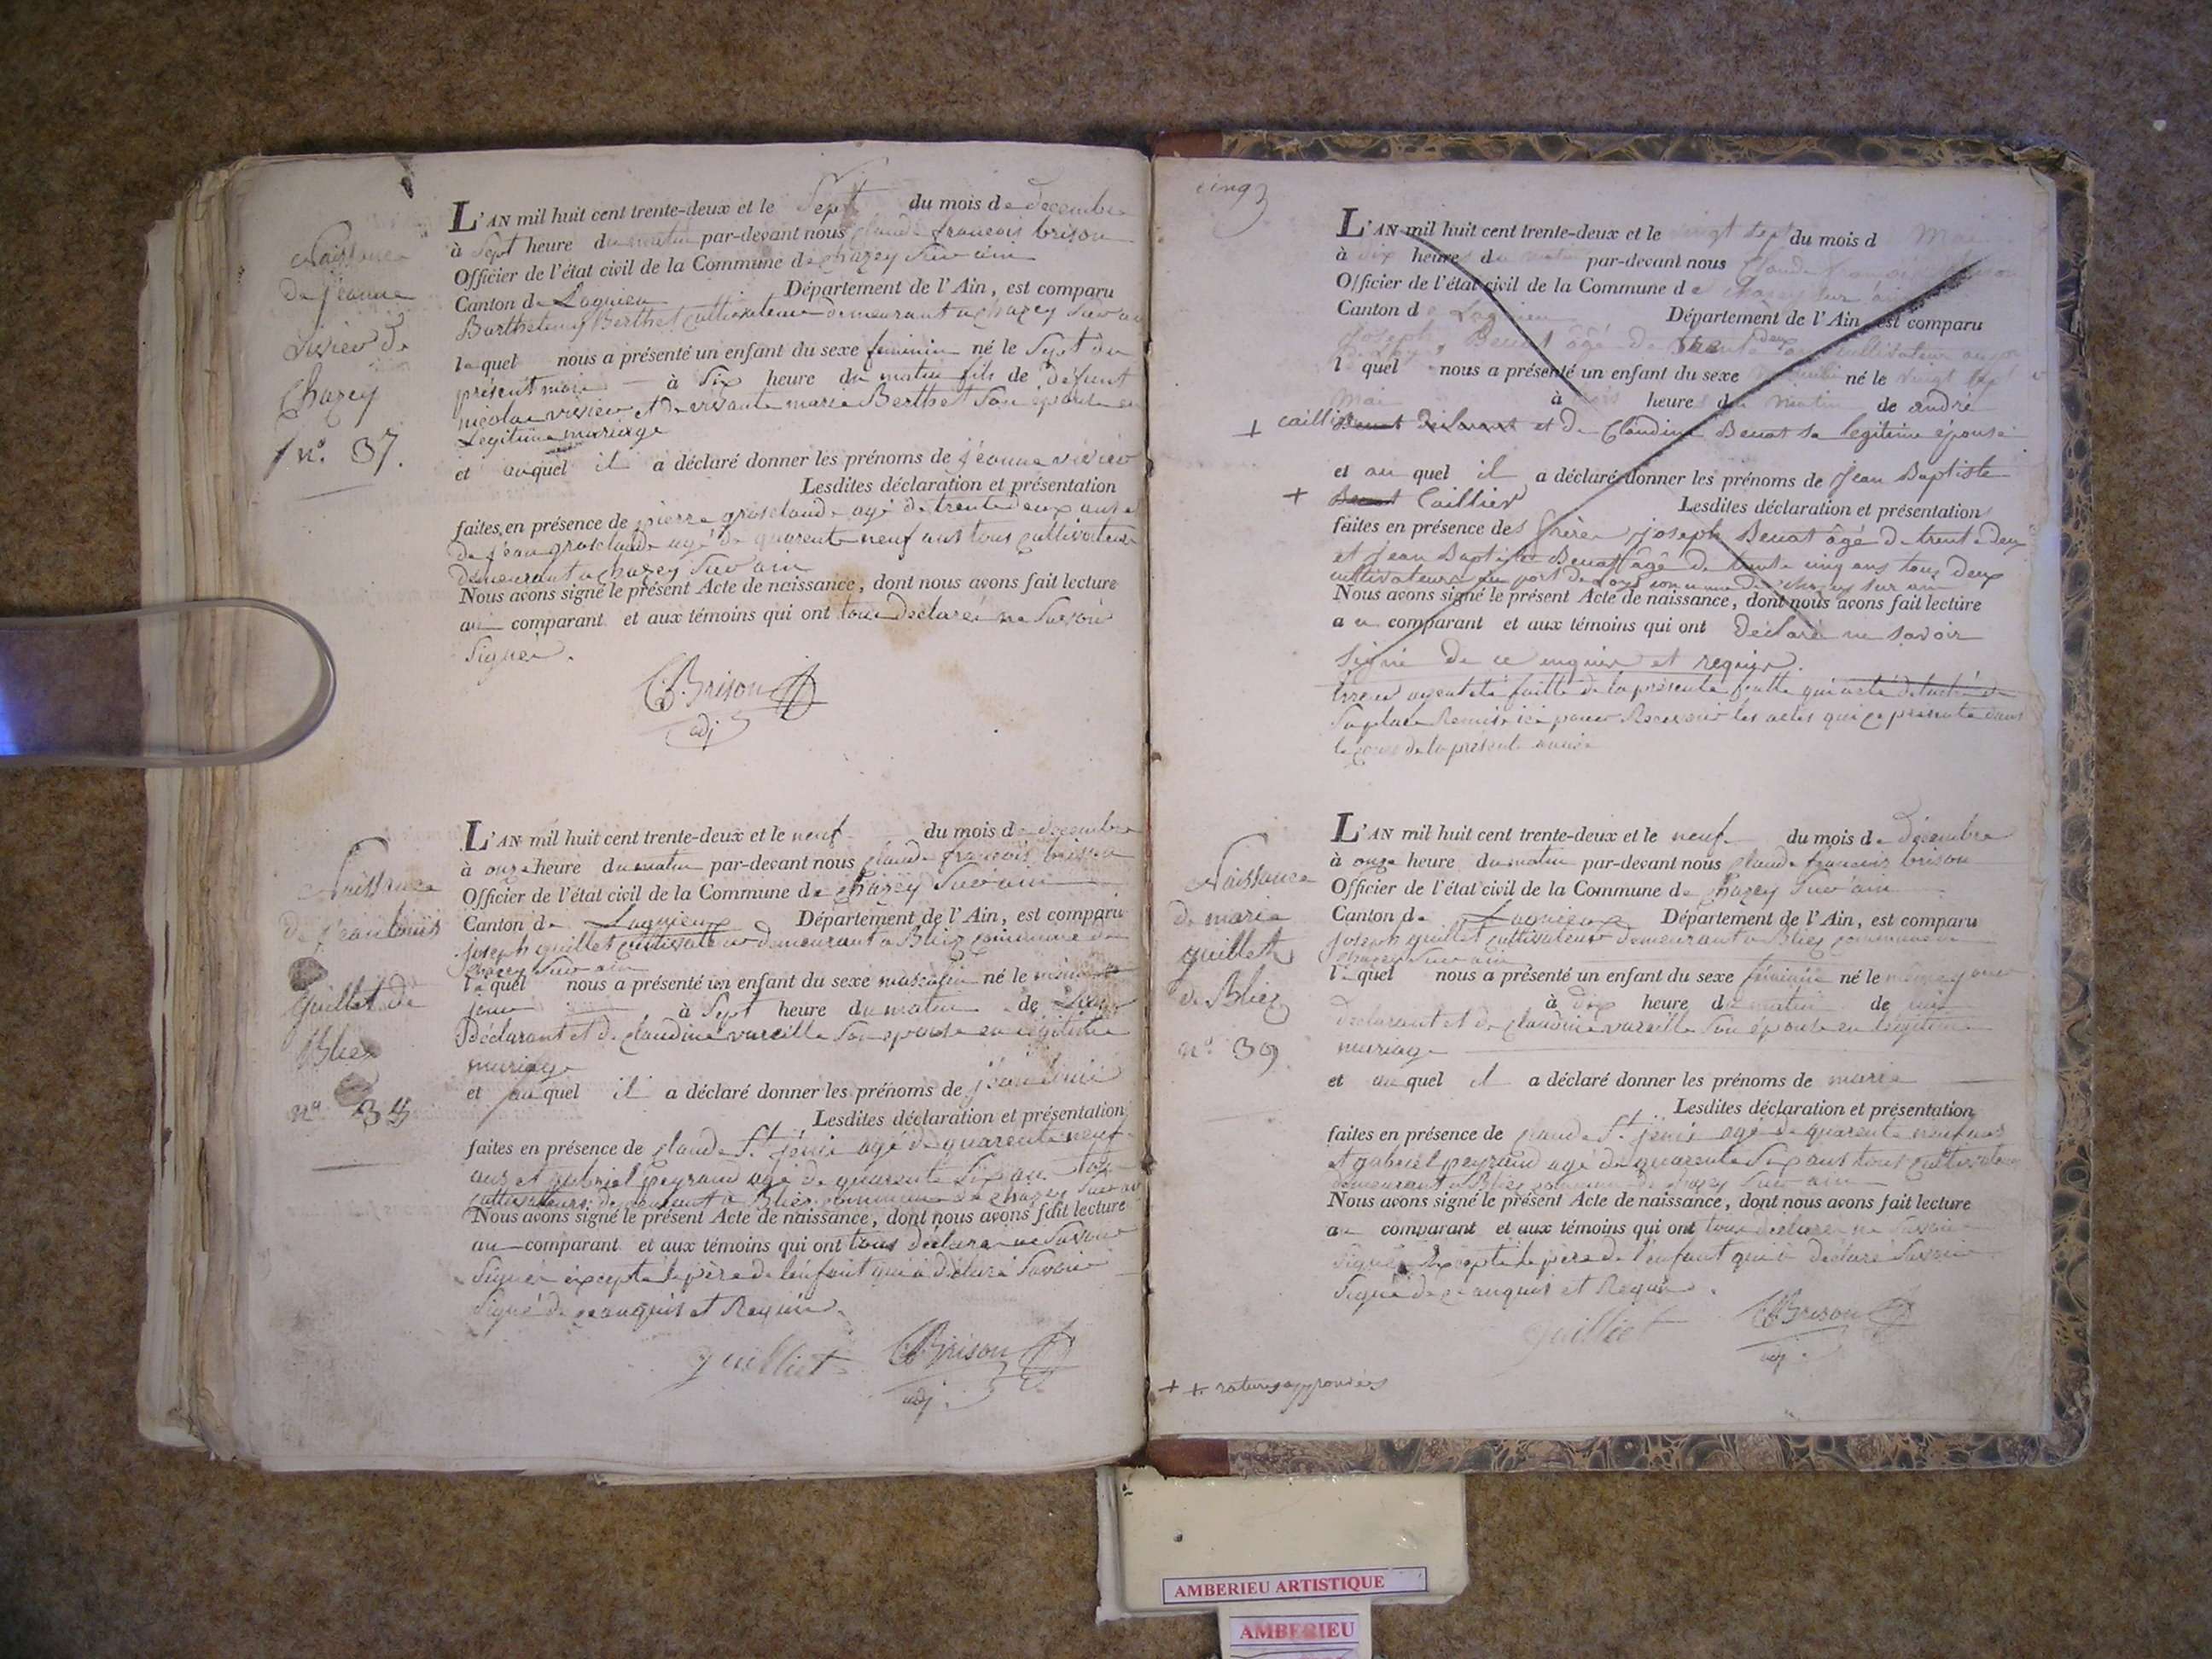 Naissance
de jeanne
vivier de
Chazey
n.o 37.
L'AN mil huit cent trente-deux et le Sept du mois de decembre
à Sept heure du matin par-devant nous claude francois brison
Officier de l'état civil de la Commune de chazey Sur ain
Canton de Lagnieu Département de l'Ain, est comparu
Barthelemy Berthet cultivateur demeurant a chazey Sur ain
lequel nous a présenté un enfant du sexe feminin né le Sept du
présent mois à Six heure du matin fils de défunt
nicolas vivier et de vivante marie Berthet Son epouse en
Légitime mariage
et auquel il a déclaré donner les prénoms de jéanne vivier
Lesdites déclaration et présentation
faites en présence de pierre grosclaude agé de trente deux ans et
de jean grosclaude agé de quarente neuf ans tous cultivateurs
demeurant a chazey Sur ain
Nous avons signé le présent Acte de naissance, dont nous avons fait lecture
au comparant et aux témoins qui ont tous declaré ne Savoir
Signer.
CBrison
adj
Naissance
de jean louis
guillet de
Blies
n.o 38
L'AN mil huit cent trente-deux et le neuf du mois de decembre
à onze heure du matin par-devant nous claude francois brison
Officier de l'état civil de la Commune de chazey Sur ain
Canton de Lagnieux Département de l'Ain, est comparu
joseph guillet cultivateur demeurant a Bliez commune de
chazey Sur ain
lequel nous a présenté un enfant du sexe masculin né le même
jour à Sept heure du matin de
Déclarant et de claudine vareille Son epouse en légitime
mariage
et au quel il a déclaré donner les prénoms de jéan louis
Lesdites déclaration et présentation
faites en présence de claude S.t jénis agé de quarente neuf
ans et gabriel peyraud agé de quarente Six ans tous
cultivateurs demeurant a Bliés commune de chazey Sur ain
Nous avons signé le présent Acte de naissance, dont nous avons fait lecture
au comparant et aux témoins qui ont tous déclaré ne Savoir
Signér éxcepté le père de l'enfant qui a déclaré Savoir
Signé de ce anquis et Requis.
guilliet CBrison
adj.
cinq
L'AN mil huit cent trente-deux et le vingt sept du mois d Mai
à dix heures du matin par-devant nous Claude françois Brison
Officier de l'état civil de la Commune de chazey sur ain
Canton de Lagnieu Département de l'Ain, est comparu
Joseph Benat âgé de trente deux ans cultivateur au port
de Loye,
l quel nous a présenté un enfant du sexe né le vingt sept
Mai à heures du matin de andré
+ caillier et de Claudine Benat sa legitime épouse
et au quel il a déclaré donner les prénoms de Jean Baptiste
+ Benat Caillier Lesdites déclaration et présentation
faites en présence des frères joseph Benat âgé de trente deux
et jean Baptiste Benat âgé de trente cinq ans tous deux
cultivateurs au port de Loye commune de chazey sur ain
Nous avons signé le présent Acte de naissance, dont nous avons fait lecture
au comparant et aux témoins qui ont déclaré ne savoir
signé de ce enquier et requier.
Erreur ayent eté faitte de la présente feuille qui a eté détaché de
Sa place Remise ici pour Recevoir les actes qui ce présente dans
le cours de la présente année
Naissance
de marie
guillet
de Bliez
n.o 39
L'AN mil huit cent trente-deux et le neuf du mois de décembre
à onze heure du matin par-devant nous claude francois brison
Officier de l'état civil de la Commune de chazey Sur ain
Canton de Lagnieux Département de l'Ain, est comparu
joseph guillet cultivateur demeurant a Bliez commune de
chazey Sur ain
lequel nous a présenté un enfant du sexe féminin né le même jour
à dix heure du matin de
declarant et de claudine vareille Son épouse en légitime
mariage
et au quel il a déclaré donner les prénoms de marie
Lesdites déclaration et présentation
faites en présence de claude S.t jénis agé de quarente neuf ans
et gabriel peyraud agé de quarente Six ans tous cultivateurs
demeurant a Bliez commune de chazey Sur ain
Nous avons signé le présent Acte de naissance, dont nous avons fait lecture
au comparant et aux témoins qui ont tous declaré ne Savoir
Signér Excepté le père de l'enfant qui a declaré Savoir
Signé de ce anquis et Requis.
guilliet CBrison
adj.
+ + ratures approuvées
AMBERIEU ARTISTIQUE
AMBERIEU